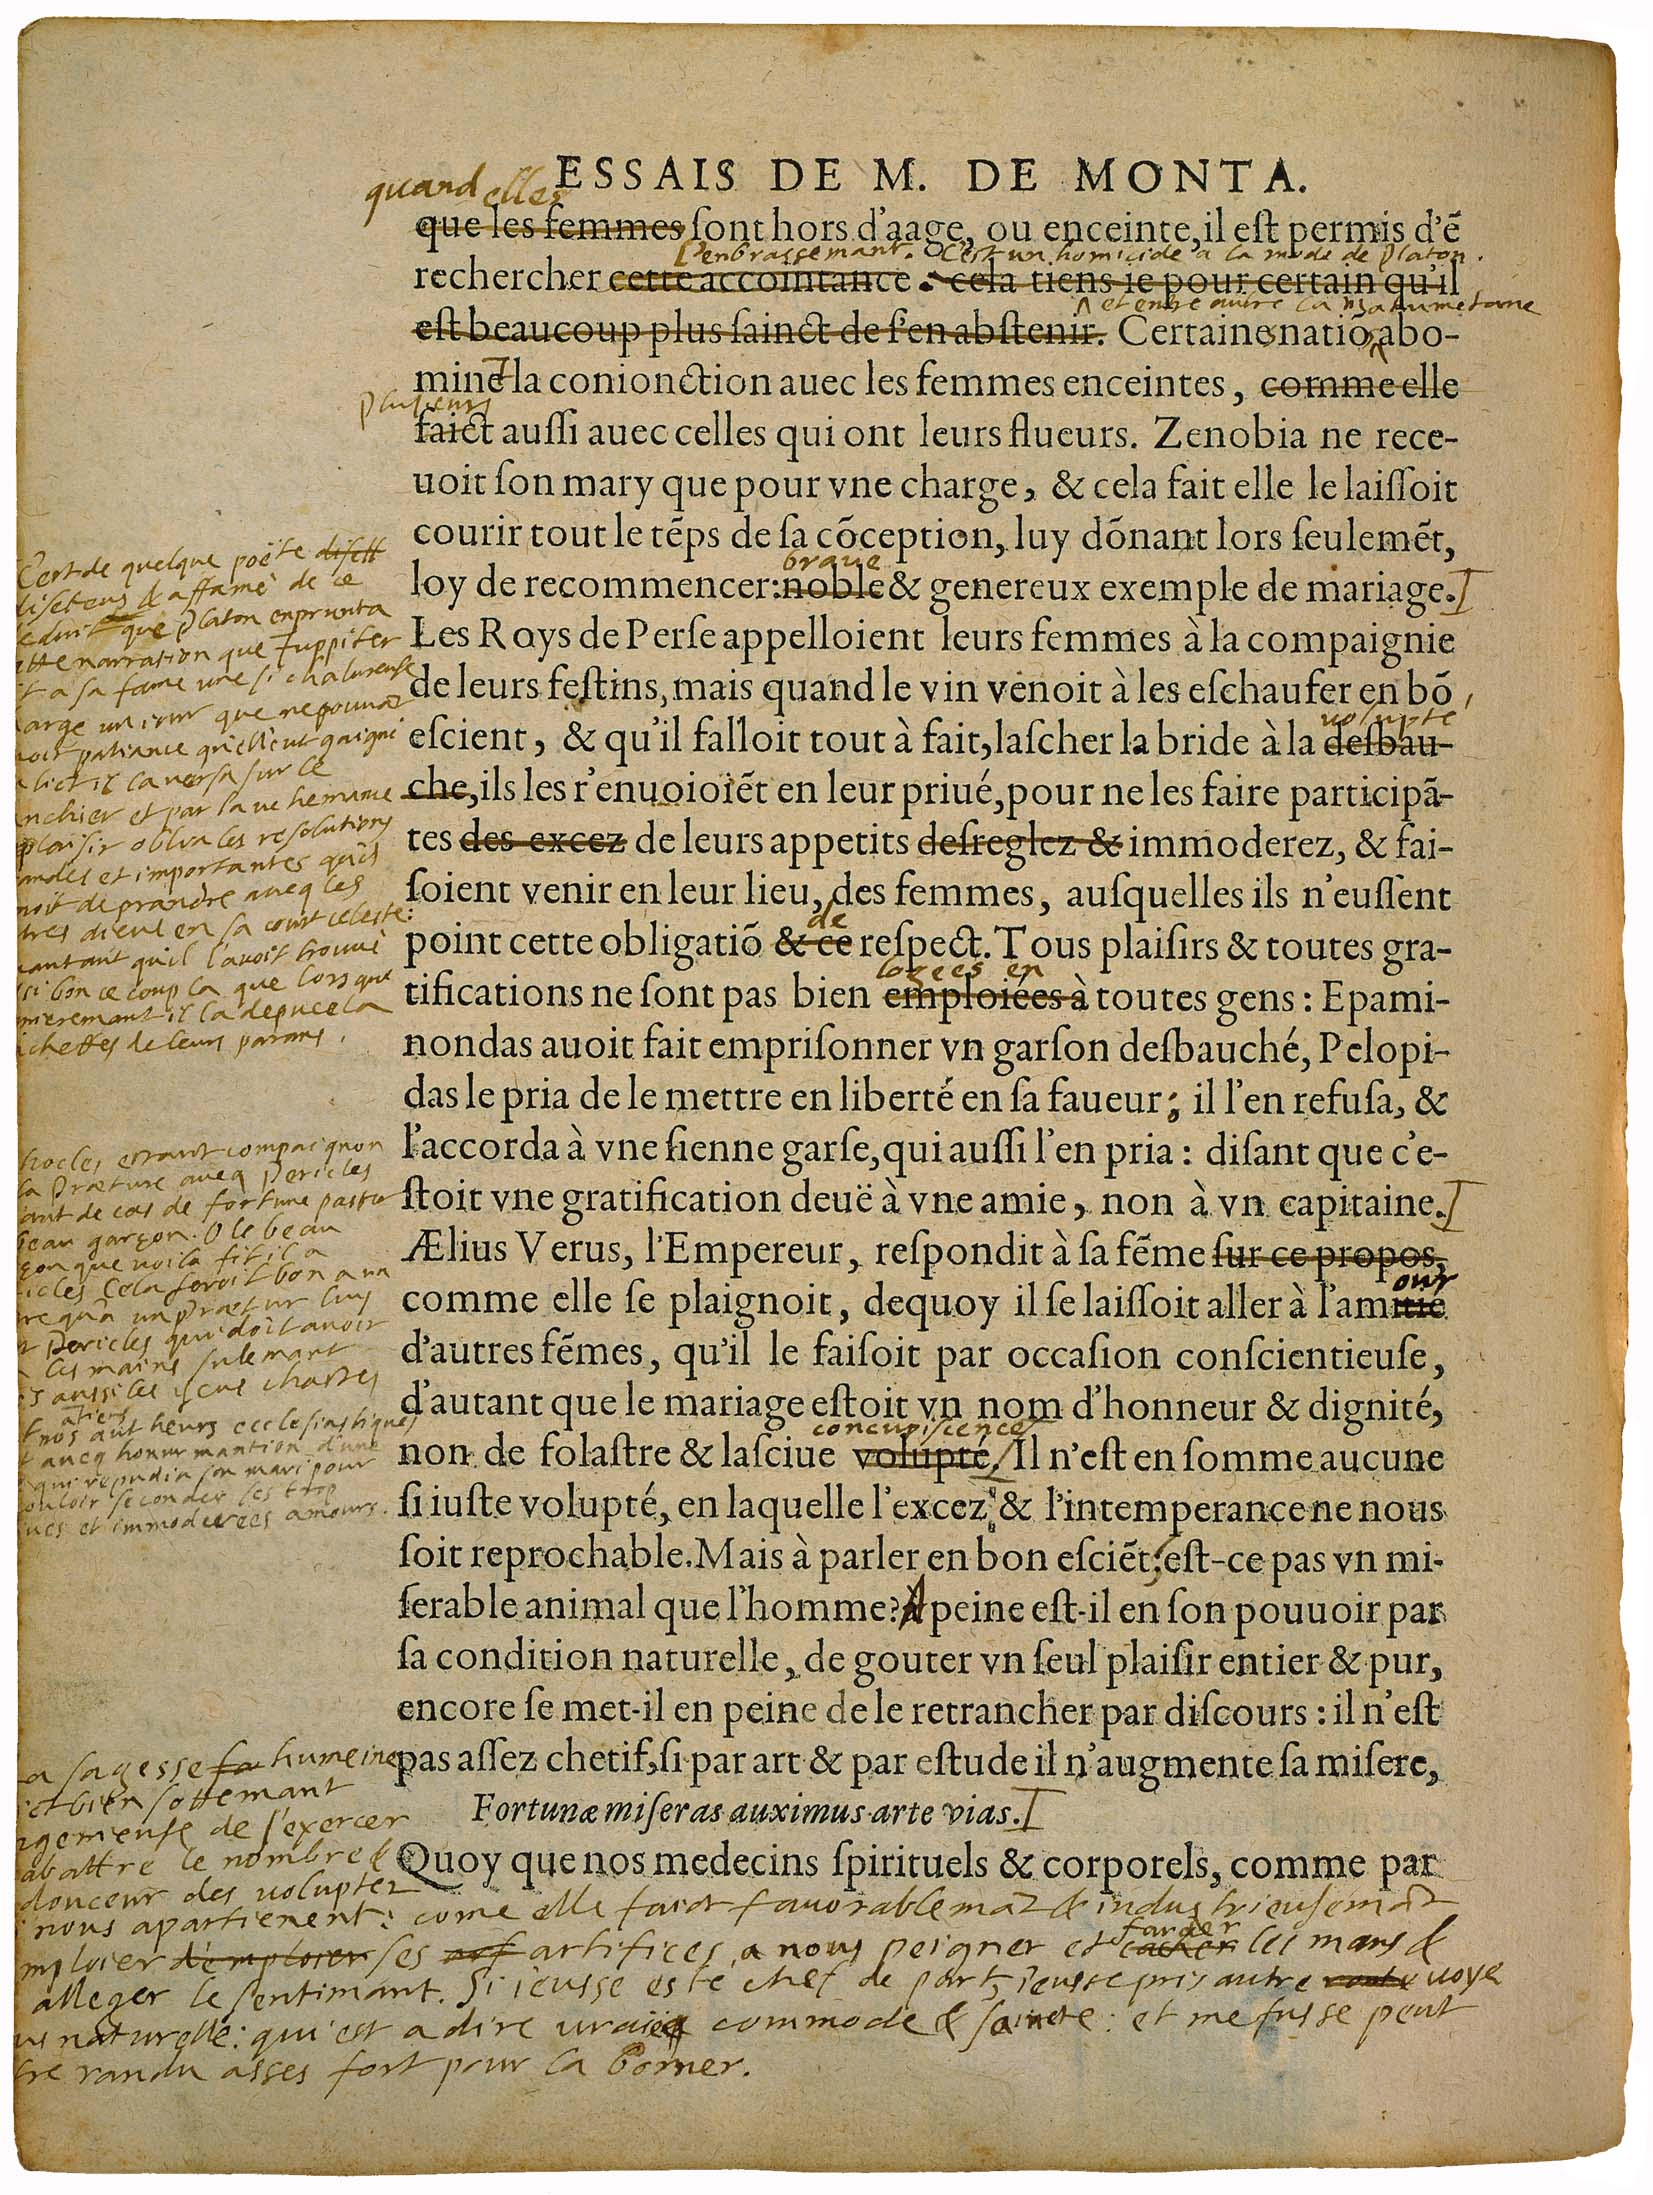 ESSAIS DE M. DE MONTA.
quand elles
que les femmes ſont hors d'aage, ou enceinte, il eſt permis d'ẽ
l'enbrassemant. C'est un homicide a la mode de Platon.
rechercher cette accointance. cela tiens ie pour certain qu'il
et entre autre la Mahumetane
eſt beaucoup plus ſainct de s'en abſtenir. Certaines nations abo-
minēt la conionction auec les femmes enceintes, comme elle
Plusieurs
faict auſſi auec celles qui ont leurs flueurs. Zenobia ne rece-
uoit ſon mary que pour vne charge, & cela fait elle le laiſſoit
courir tout le tẽps de ſa cõception, luy dõnant lors ſeulemẽt,
braue
loy de recommencer: noble & genereux exemple de mariage.
Les Roys de Perſe appelloient leurs femmes à la compaignie
de leurs feſtins, mais quand le vin venoit à les eſchaufer en bõ
volupte
eſcient, & qu'il falloit tout à fait, laſcher la bride à la deſbau-
che, ils les r'enuoioiẽt en leur priué, pour ne les faire participã-
tes des excez de leurs appetits deſreglez & immoderez, & fai-
ſoient venir en leur lieu, des femmes, auſquelles ils n'euſſent
de
point cette obligatiõ & ce reſpect. Tous plaiſirs & toutes gra-
logees en
tifications ne ſont pas bien emploiées à toutes gens: Epami-
nondas auoit fait empriſonner vn garſon deſbauché, Pelopi-
das le pria de le mettre en liberté en ſa faueur; il l'en refuſa, &
l'accorda à vne ſienne garſe, qui auſſi l'en pria: diſant que c'e-
ſtoit vne gratification deuë à vne amie, non à vn capitaine.
Ælius Verus, l'Empereur, reſpondit à ſa fẽme ſur ce propos,
our
comme elle ſe plaignoit, dequoy il ſe laiſſoit aller à l'amitié
d'autres fẽmes, qu'il le faiſoit par occaſion conſcientieuſe,
d'autant que le mariage eſtoit vn nom d'honneur & dignité,
concupiscence
non de folaſtre & laſciue volupté. Il n'eſt en ſomme aucune
ſi iuſte volupté, en laquelle l'excez & l'intemperance ne nous
ſoit reprochable. Mais à parler en bon eſciẽt, eſt-ce pas vn mi-
ſerable animal que l'homme? A peine eſt-il en ſon pouuoir par
ſa condition naturelle, de gouter vn ſeul plaiſir entier & pur,
encore ſe met-il en peine de le retrancher par diſcours: il n'eſt
pas aſſez chetif, ſi par art & par eſtude il n'augmente ſa miſere,
Fortunæ miſeras auximus arte vias.
Quoy que nos medecins ſpirituels & corporels, comme par
C'est de quelque poëte disett
diseteus & affamé de ce
deduit que Platon enprunta
ette narration que Juppiter
t a sa fame une si chalureuse
arge un iour que ne pouuāt
uoir patiance qu'ell'eut gaigné
lict il la versa sur le
nchier et par la vehemance
plaisir oblia les resolutions
andes et importantes qu'il
noit de prandre aueq les
tres dieus en sa court celeste:
uantant qu'il l'auoit trouué
ssi bon ce coup la que lors que
mieremant il la depucela
chettes de leurs parans.
hocles estant compaignon
la Præture aueq Pericles
ant de cas de fortune passa
beau garçon. O le beau
çon que voila fit il a
icles Cela seroit bon a un
re qu'a un Prætur luy
t Pericles qui doit auoir
les mains sulemant
s aussi les yeus chastes
t nos autheurs ecclesiastiques
t aueq honur mantion d'une
qui repudia son mari pour
ouloir seconder ses trop
ues et immoderees amours.
a sagesse humeine
ict bien sottemant
ngenieuse de s'exercer
abattre le nombre &
douceur des voluptez
nous apartienent: come elle faict fauorablemāt & industrieusemāt
farder
mploier d'emploier ses artifices a nous peigner et cacher les maus &
alleger le sentimant. Si i'eusse esté chef de part, i'eusse pris autre voye
us naturelle: qui est a dire uraïe commode & saincte: et me fusse peut
tre randu asses fort pour la borner.